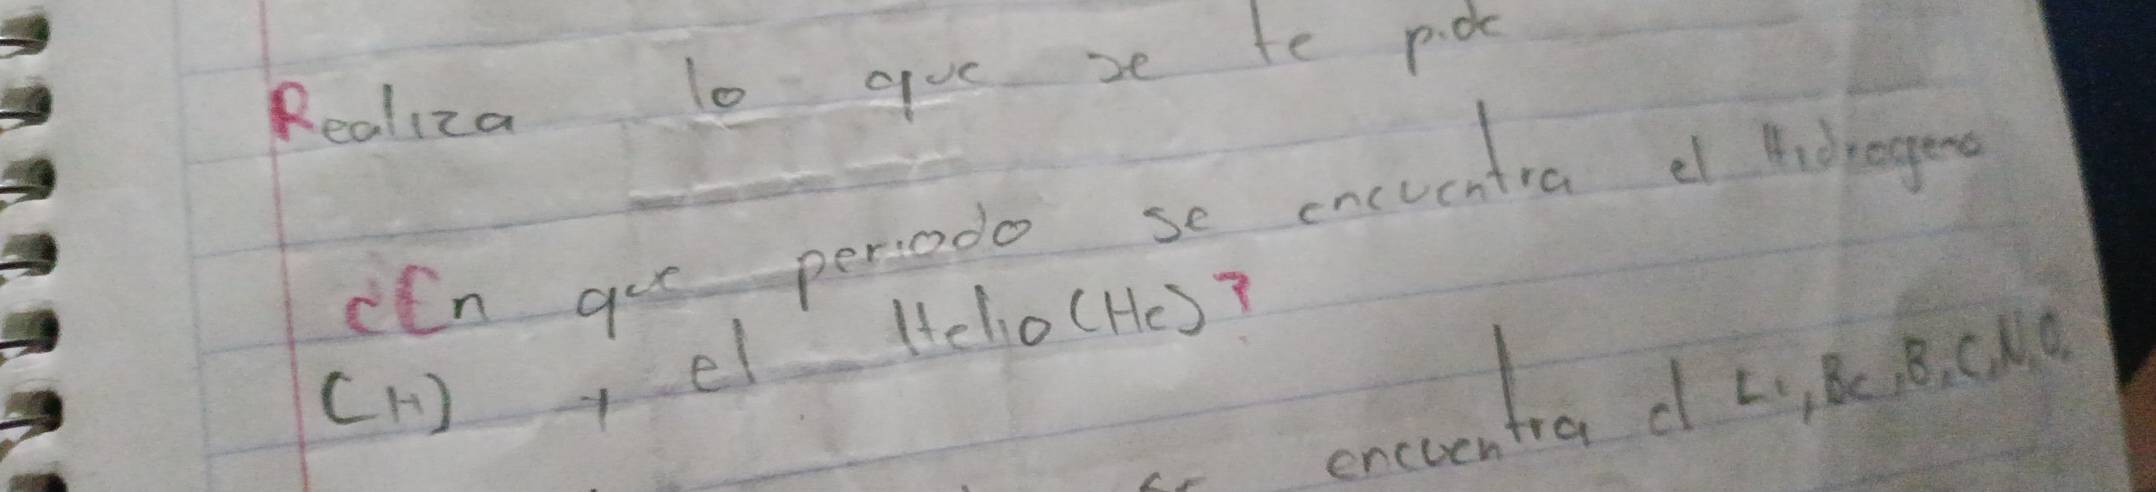 Realiza lo que se te pide
¿En que periodo se encuentra el Hidrogeno
(H) y el Helio (He)?
se encuentra el Li, Be, B, C, N, O,